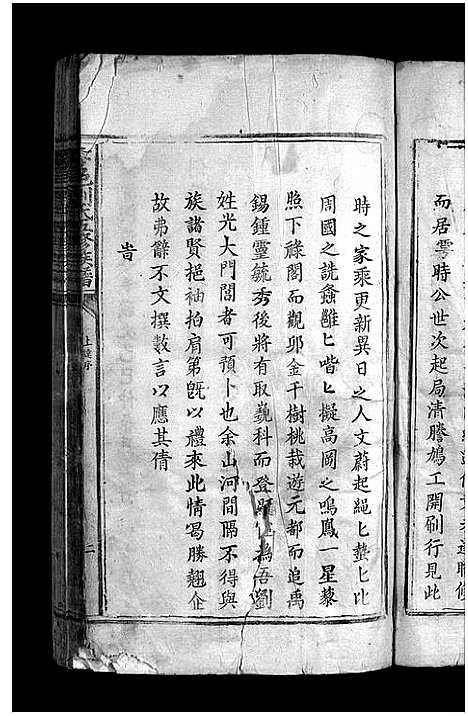 而居零時公世次起局清謄鳩工開刷行見此
時之家乘更新異日之人文蔚起繩匕蟄匕比
周國之詵螽雝匕喈匕擬高岡之鳴鳳一星藜
照下祿閣而觀卯金千樹桃栽遊元都而追禹
錫鍾靈毓秀後將有取巍科而登顯 為吾劉
姓光大門閭者可預卜也余山河間隔不得與
族諸賢挹袖拍肩第既以禮來此情曷勝翹企
故弗辭不文撰数言以應其倩
旹
邑劉氏修族譜
上 序
二